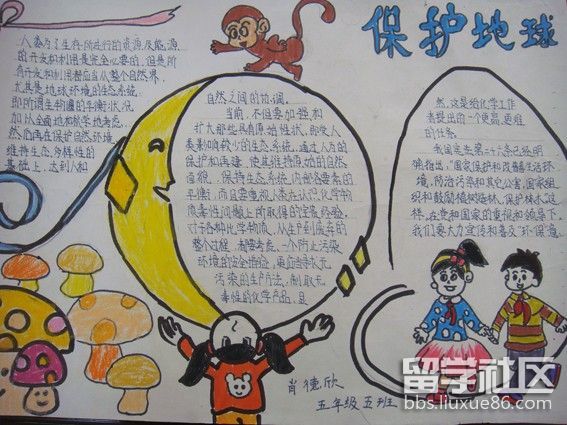 保护地球
人类为了生存所进行的资源及能源
的开发和利用是完全必要的。但是所
有开发和利用都应当从整个自然界,
尤其是地球环境的生态系统,
即所谓生物圈的平衡状况
加以全面地和科学地考虑,
然而再在保护自然环境
维持生态多样性的
基础上,达到人和
自然之间的协调。
当前,不但要加强和
扩大那些具有原始性状,即受人
类影响较少的生态系统,通过人为的
保护和再建,使其维持原始的自然
面貌,保持生态系统内部各要素的
平衡,而且要重视人类在认识化学物
质毒性问题上所取得的宝贵经验。
对于各种化学物质,从生产到废弃的
整个过程,都要考虑。一个防止污染
环境的安全措施,更应当考虑无
污染的生产方法,制取无
毒性的化学产品。且
然,这是给化学工作
者提出的一个更高、更难
的任务。
我国宪法第二十六条已经明
确指出:“国家保护和改善生活环
境,防治污染和其它公害,国家组
织和鼓励植树造林,保护林木。”这
样,在党和国家的重视和领导下,
我们要大力宣传和普及“环保”意
肖德欣
五年级五班
留学社区
bbs.liuxue86.com